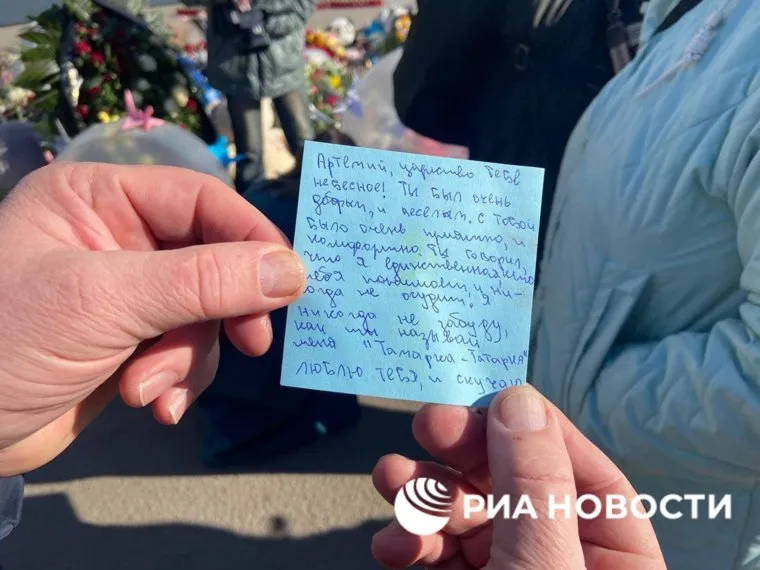 Артемий, царство тебе
небесное! Ты был очень
добрым, и весёлым. С тобой
было очень приятно, и
комфортно. Ты говорил,
что я единственная кто
тебя понимает, и ни-
когда не осудит! Я
никогда не забуду,
как ты называл
меня "Тамарка-Татарка"
люблю тебя, и скучаю
РИА НОВОСТИ